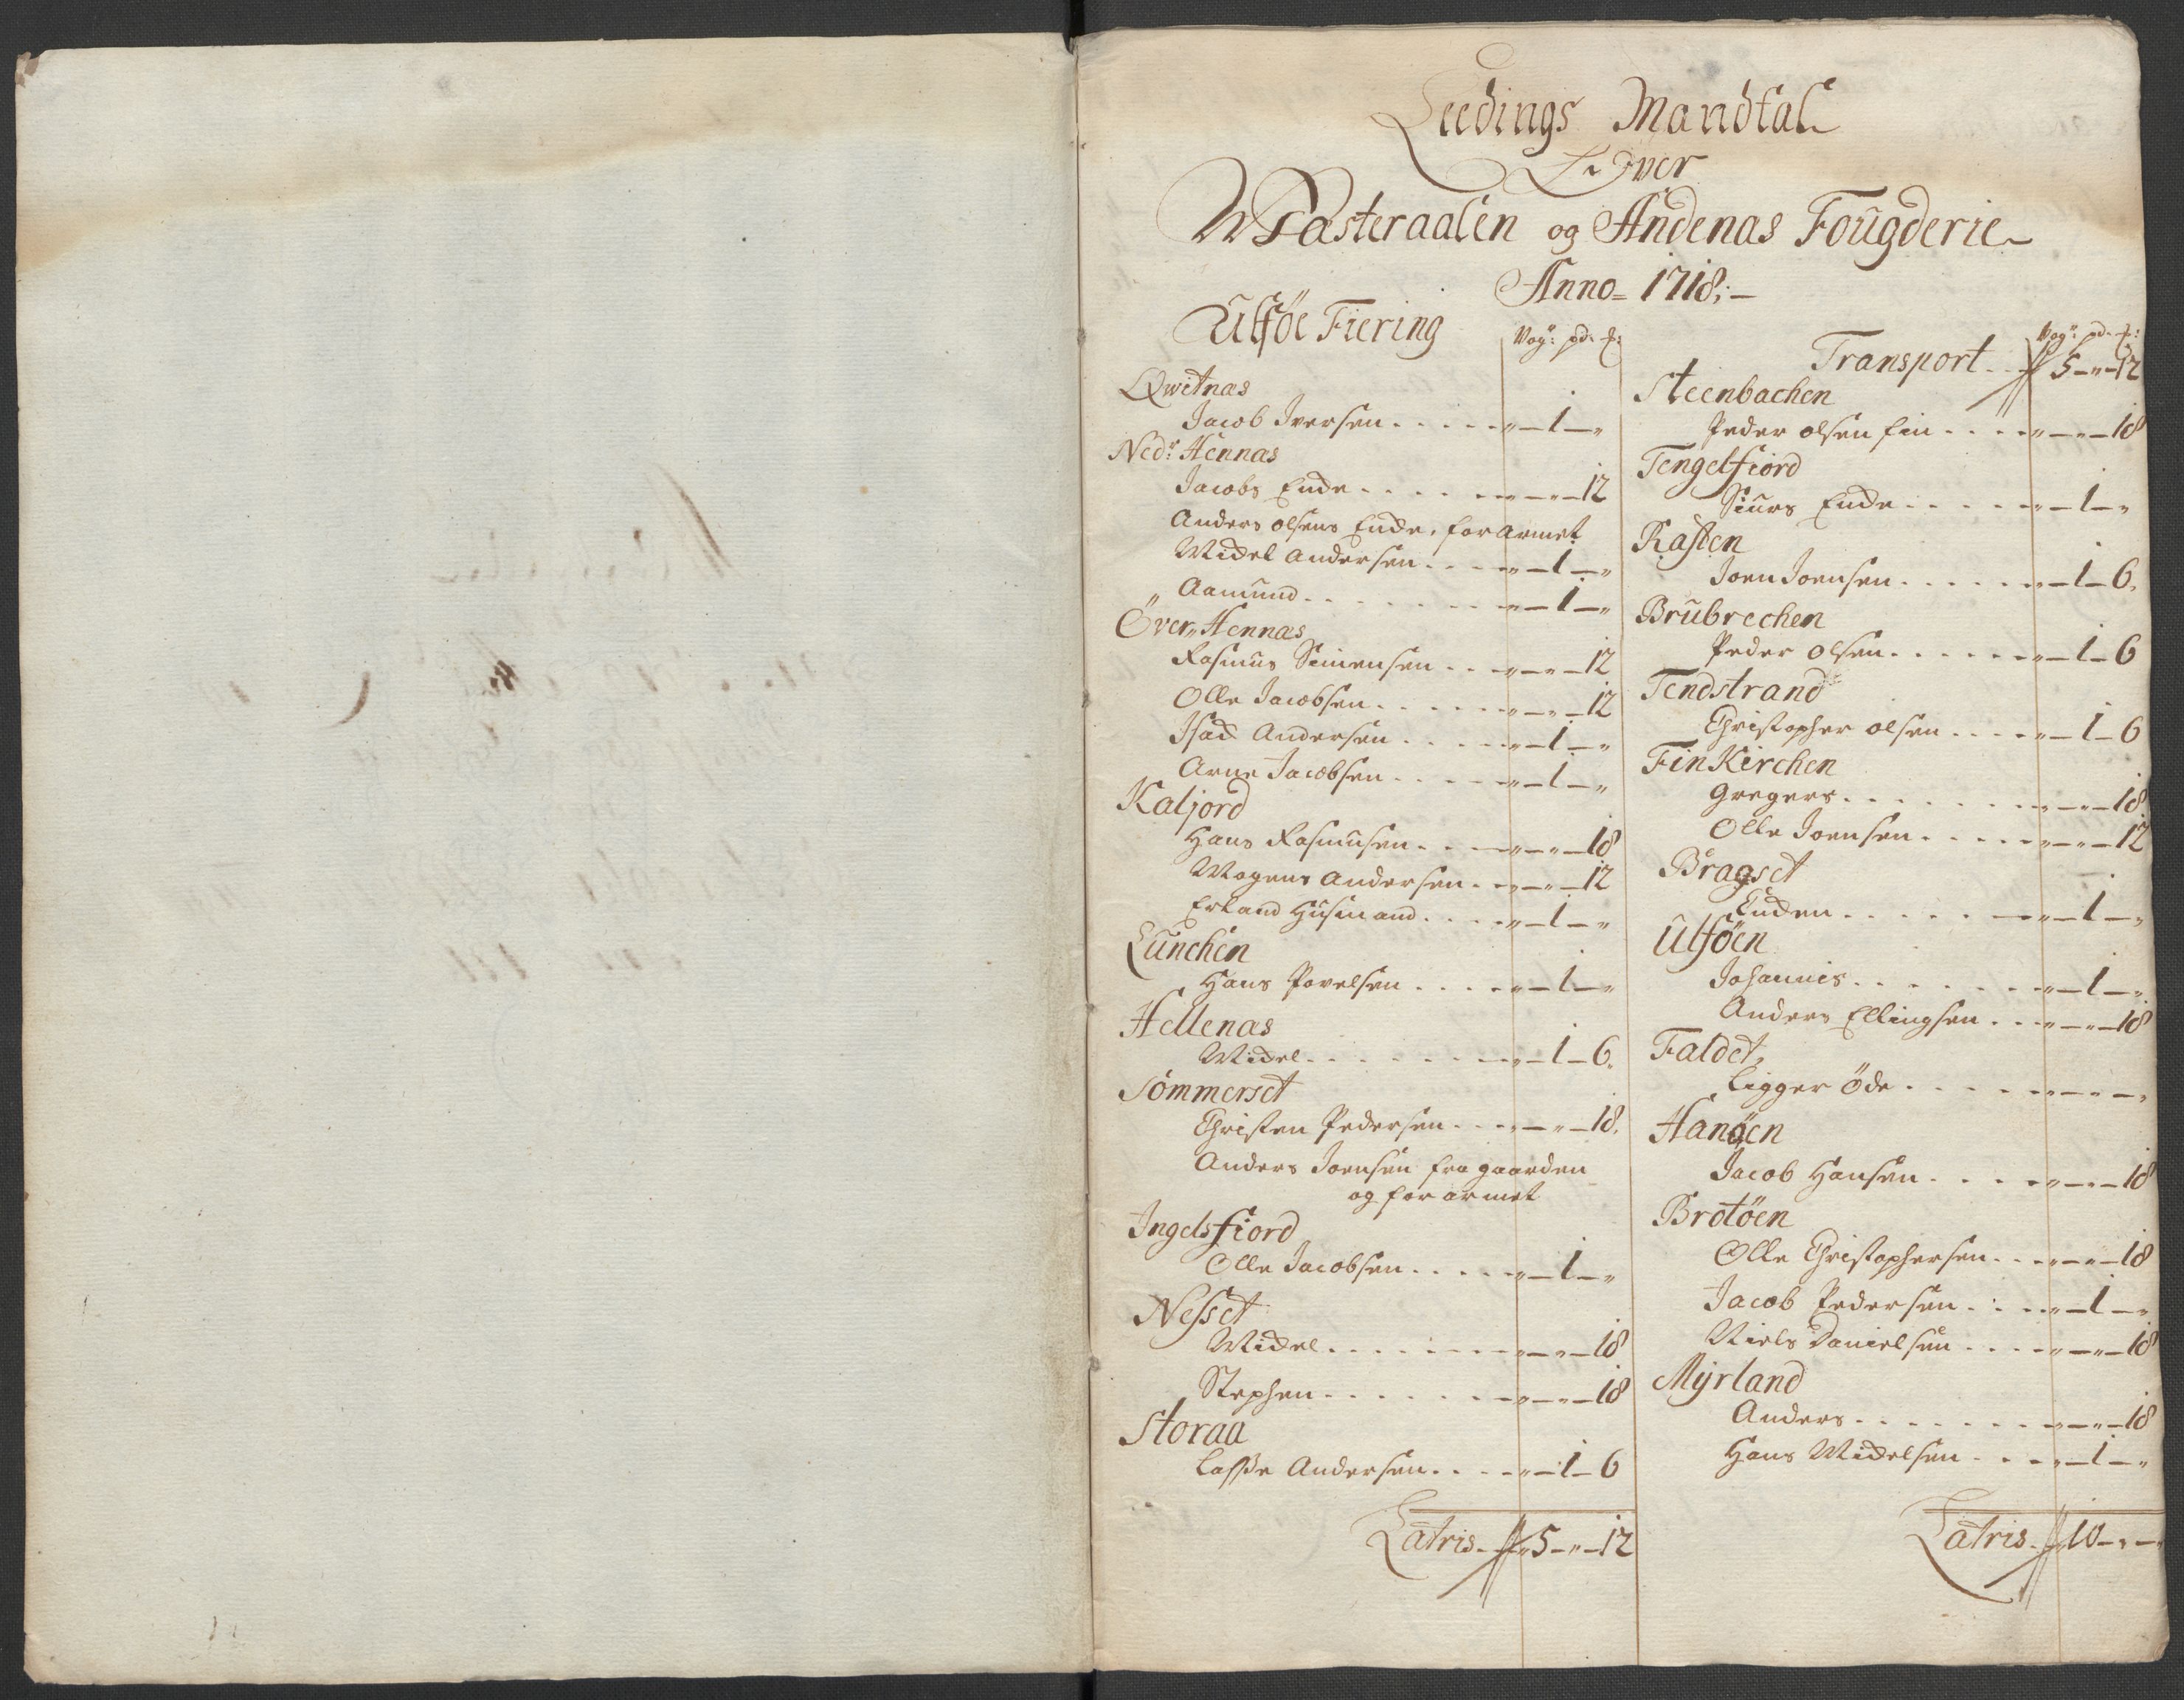 Leedings Mandtal
Over
Wæsteraalen og Andenæs Fougderie
Anno 1718;
Ulföe Fiering
Vog: pd: 
Qwitnæs
Jacob Iversen - 1 -
Ned: Hennæs
Jacobs Encke - - 12
Anders olsens Encke, forarmet
Michel Andersen - 1 -
Aamund - 1 -
Över Hennæs
Rasmus Simensen - - 12
Olle Jacobsen - - 12
Isach Andersen - 1 -
Arne Jacobsen - 1 -
Kaljord
Hans Rasmusen - - 18
Mogens Andersen - - 12
Erland Husmand - 1 -
Lunchen
Hans Povelsen - 1 -
Hellenæs
Michel - 1 - 6
Sömmerset
Christen Pedersen - - 18
Anders Joensen fra gaarden
og forarmet
Ingelsfiord
Olle Jacobsen - 1 -
Nesset
Michel - - 18
Stephen - - 18
Storaa
Lasse Andersen - 1 - 6
Latris 5 - - 12
Vog: pd: 
Transport 5 - - 12
Steenbachen
Peder olsen fin - - 18
Tengelfiord
Siurs Encke - 1 -
Rasten
Joen Joensen - 1 - 6
Brubrechen
Peder olsen - 1 - 6
Tendstrand
Christopher olsen - 1 - 6
FinKirchen
Gregers - - 18
Olle Joensen - - 12
Bragset
Encken - 1 -
Ulföen
Johannes - 1 -
Anders Ellingsen - - 18
Faldet
ligger öde - - -
Hanöen
Jacob Hansen - - 18
Brotöen
Olle Christophersen - - 18
Jacob Pedersen - 1 -
Niels Danielsen - - 18
Myrland
Anders - - 18
Hans Michelsen - 1 -
Latris 10 - - -